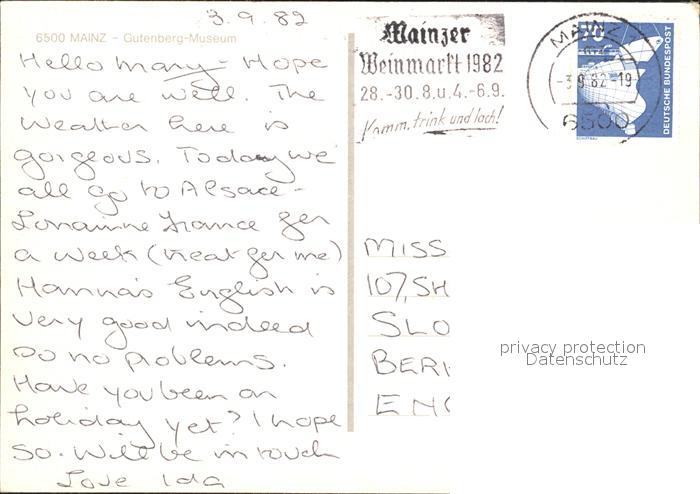 3.9.82
6500 MAINZ – Gutenberg-Museum
Hello Mary – Hope
you are well. The
weather here is
gorgeous. Today we
all go to Alsace-
Lorrainne France for
a week (treat for me)
Hanna's English is
very good indeed
so no problems.
Have you been on
holiday yet? I hope
so. Will be in touch
Love Ida
Mainzer
Weinmarkt 1982
28.-30.8.u.4.-6.9.
Komm, trink und lach!
MAINZ
-3.9.82-19
6500
70
DEUTSCHE BUNDESPOST
MISS
107, SH
SLO
BER
ENG
privacy protection
Datenschutz